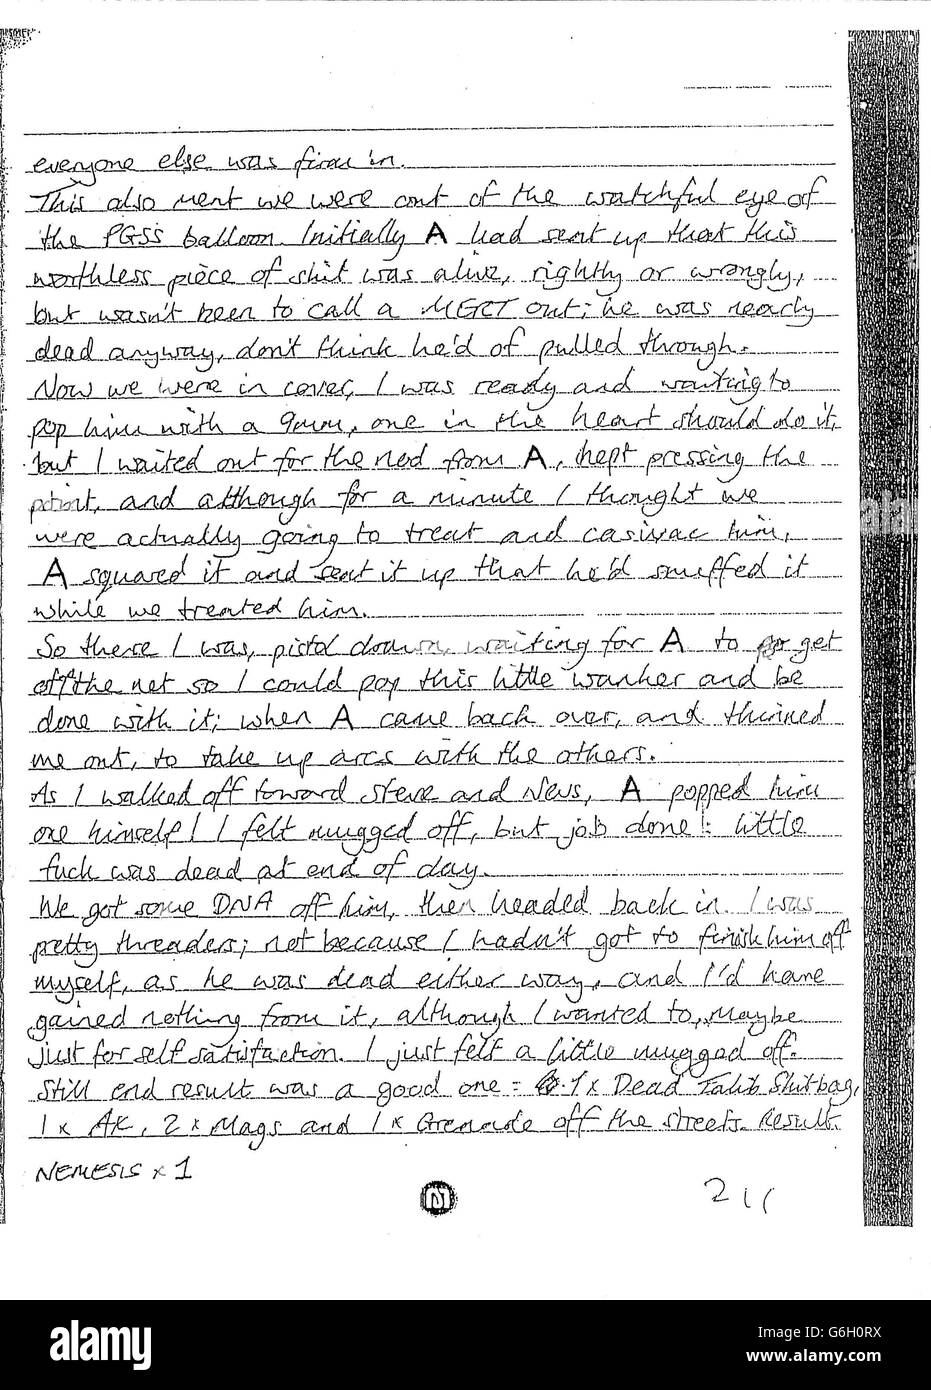 everyone else was firm in.
This also ment we were out of the watchful eye of
the PGSS balloon. Initially A had sent up that this
worthless piece of shit was alive, rightly or wrongly,
but wasn't keen to call a MERT out; he was nearly
dead anyway, don't think he'd of pulled through.
Now we were in cover, I was ready and waiting to
pop him with a 9mm, one in the heart should do it,
but I waited out for the nod from A, kept pressing the
point, and although for a minute I thought we
were actually going to treat and casivac him,
A squared it and sent it up that he'd snuffed it
while we treated him.
So there I was, pistol drawn, waiting for A to get
off the net so I could pop this little wanker and be
done with it; when A came back over, and thinned
me out, to take up arcs with the others.
As I walked off toward Steve and News, A popped him
one himself! I felt mugged off, but job done! little
fuck was dead at end of day.
We got some DNA off him, then headed back in. I was
pretty threaders; not because I hadn't got to finish him off
myself, as he was dead either way, and I'd have
gained nothing from it, although I wanted to, maybe
just for self satisfaction. I just felt a little mugged off.
Still end result was a good one = 1 x Dead Talib Shitbag,
1 x AK, 2 x Mags and 1 x Grenade off the streets. Result.
NEMESIS x 1
211
alamy
Image ID: G6H0RX
www.alamy.com